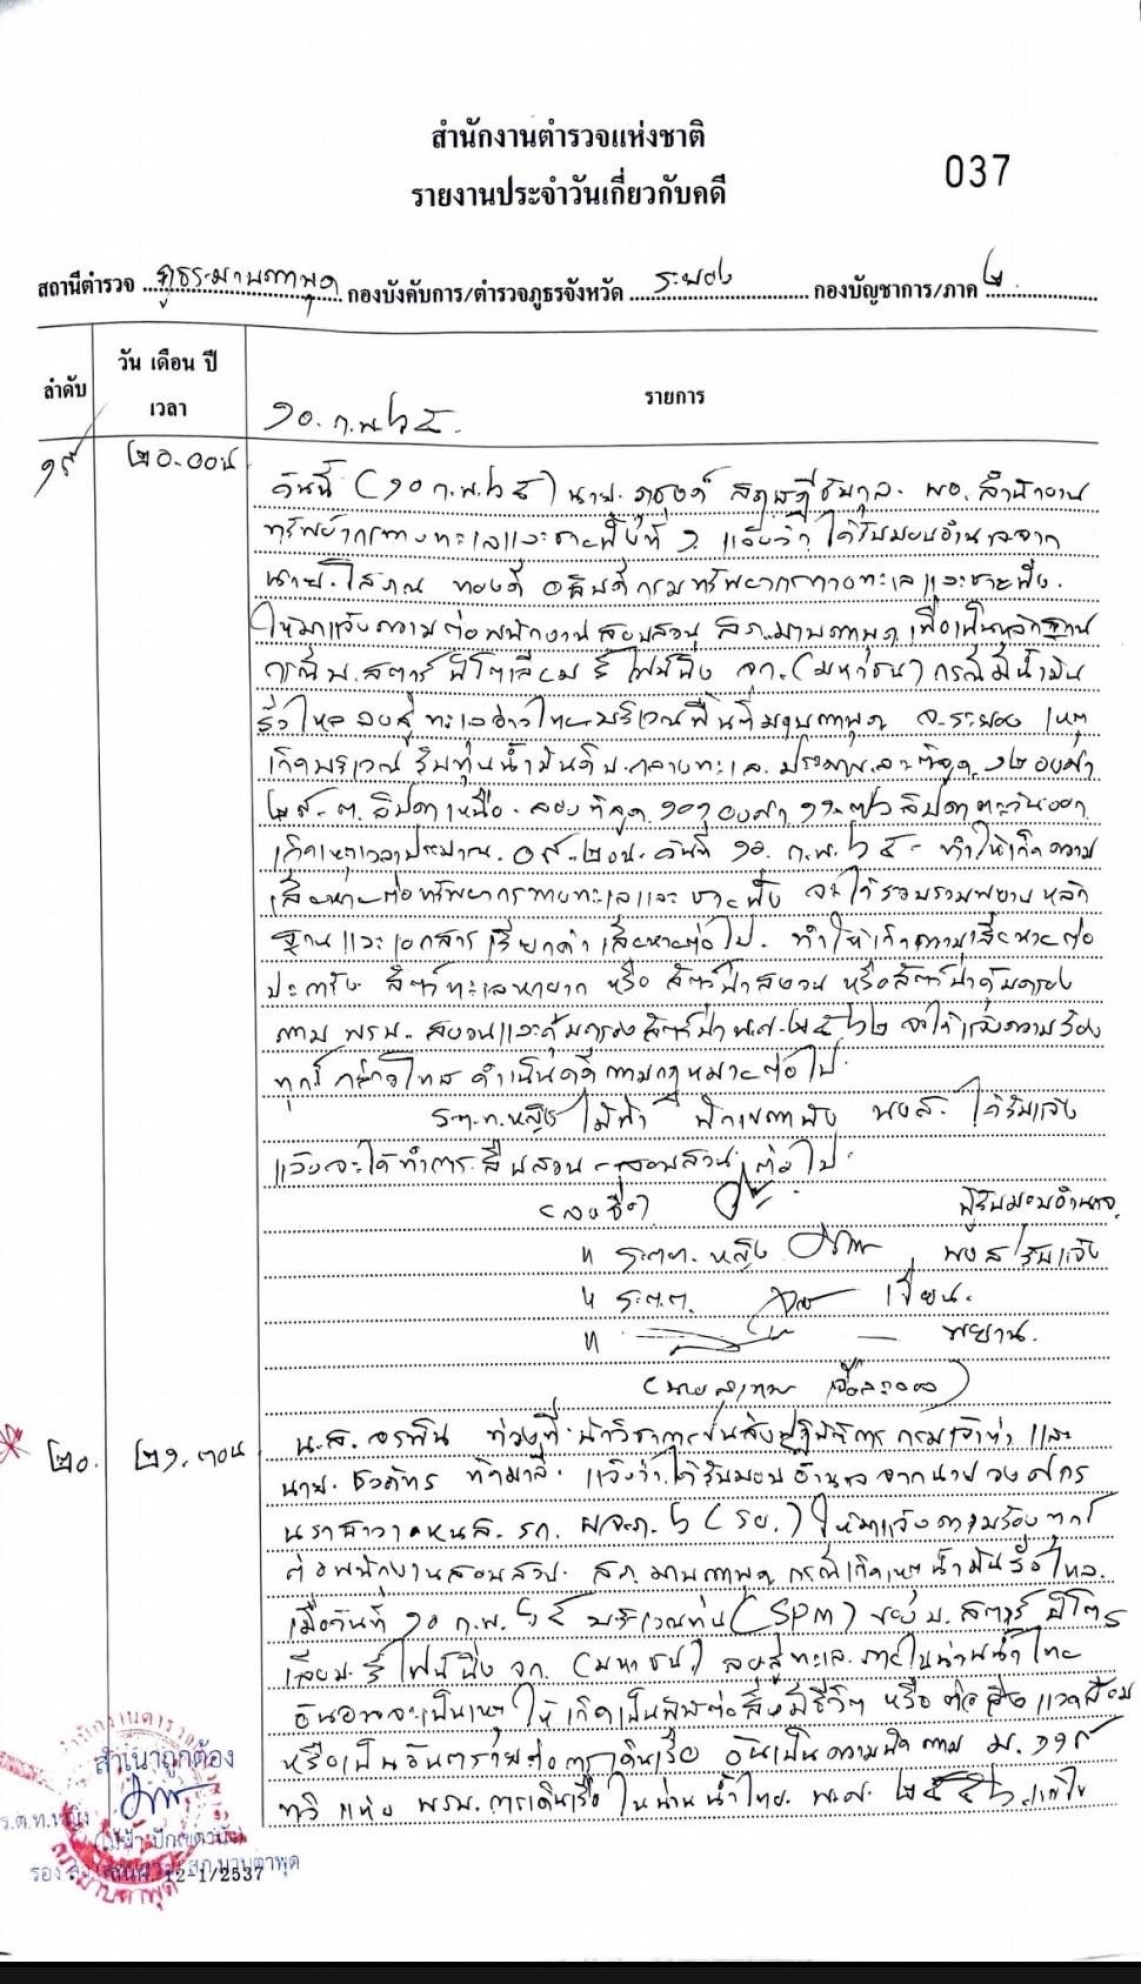 สำนักงานตำรวจแห่งชาติ
037
รายงานประจำวันเกี่ยวกับคดี
สถานีตำรวจ ภูธรมาบตาพุด กองบังคับการ/ตำรวจภูธรจังหวัด ระยอง กองบัญชาการ/ภาค ๒
ลำดับ
วัน เดือน ปี
เวลา
รายการ
๑๐ ก.พ. ๖๕
๑๙ ๒๐.๐๐ น
วันนี้ (๑๐ ก.พ. ๖๕) นาย ภุชงค์ สฤษฎีชัยกุล ผอ. สำนักงาน
ทรัพยากรทางทะเลและชายฝั่งที่ ๑ แจ้งว่า ได้รับมอบอำนาจจาก
นาย โสภณ ทองดี อธิบดีกรมทรัพยากรทางทะเลและชายฝั่ง
ให้มาแจ้งความต่อพนักงานสอบสวน สภ.มาบตาพุด เพื่อเป็นหลักฐาน
กรณี บ.สตาร์ ปิโตรเลียม รีไฟน์นิ่ง จก. (มหาชน) กรณีมีน้ำมัน
รั่วไหลลงสู่ทะเลอ่าวไทยบริเวณพื้นที่มาบตาพุด จ.ระยอง เหตุ
เกิดบริเวณ ทุ่นน้ำมันดิบกลางทะเล ละติจูด ๑๒ องศา
ลิปดาเหนือ ลองติจูด ๑๐๑ องศา ลิปดา ตะวันออก
เกิดเหตุเวลาประมาณ วันที่ ๑๐ ก.พ. ๖๕ ทำให้เกิดความ
เสียหายต่อทรัพยากรทางทะเลและชายฝั่ง จะได้รวบรวมพยานหลัก
ฐานและเอกสารเรียกค่าเสียหายต่อไป ทำให้เกิดความเสียหายต่อ
ปะการัง สัตว์ทะเลหายาก หรือ สัตว์ป่าสงวน หรือสัตว์ป่าคุ้มครอง
ตาม พรบ. สงวนและคุ้มครองสัตว์ป่า พ.ศ. ๒๕๖๒ จะได้แจ้งความร้อง
ทุกข์ กล่าวโทษ ดำเนินคดีตามกฎหมายต่อไป
ร.ต.ท.หญิง ไม้ฟ้า ปักเขตานัง พงส. ได้รับแจ้ง
แล้วจะได้ทำการสืบสวน สอบสวน ต่อไป
(ลงชื่อ) ผู้รับมอบอำนาจ
" ร.ต.ท. หญิง พงส/รับแจ้ง
" ร.ต.ต. เขียน
" พยาน
๒๐. ๒๑.๓๐น
น.ส. อรพิน นักวิชาการขนส่งปฏิบัติการ กรมเจ้าท่า และ
นาย แจ้งว่า ได้รับมอบอำนาจจากนาย
รก. ผจภ. ๖ (รย.) ให้มาแจ้งความร้องทุกข์
ต่อพนักงานสอบสวน สภ.มาบตาพุด กรณีเกิดเหตุน้ำมันรั่วไหล
เมื่อวันที่ ๑๐ ก.พ. ๖๕ บริเวณทุ่น (SPM) ของ บ. สตาร์ ปิโตร
เลียม รีไฟน์นิ่ง จก. (มหาชน) ลงสู่ทะเล ภายในน่านน้ำไทย
อันอาจจะเป็นเหตุให้เกิดเป็นพิษต่อสิ่งมีชีวิต หรือ ต่อสิ่งแวดล้อม
หรือเป็นอันตรายต่อการเดินเรือ อันเป็นความผิดตาม ม. ๑๑๙
ทวิ แห่ง พรบ. การเดินเรือในน่านน้ำไทย พ.ศ. แก้ไข
สำเนาถูกต้อง
ร.ต.ท.หญิง
รอง สว.(สอบสวน) สภ.มาบตาพุด
12-1/2537